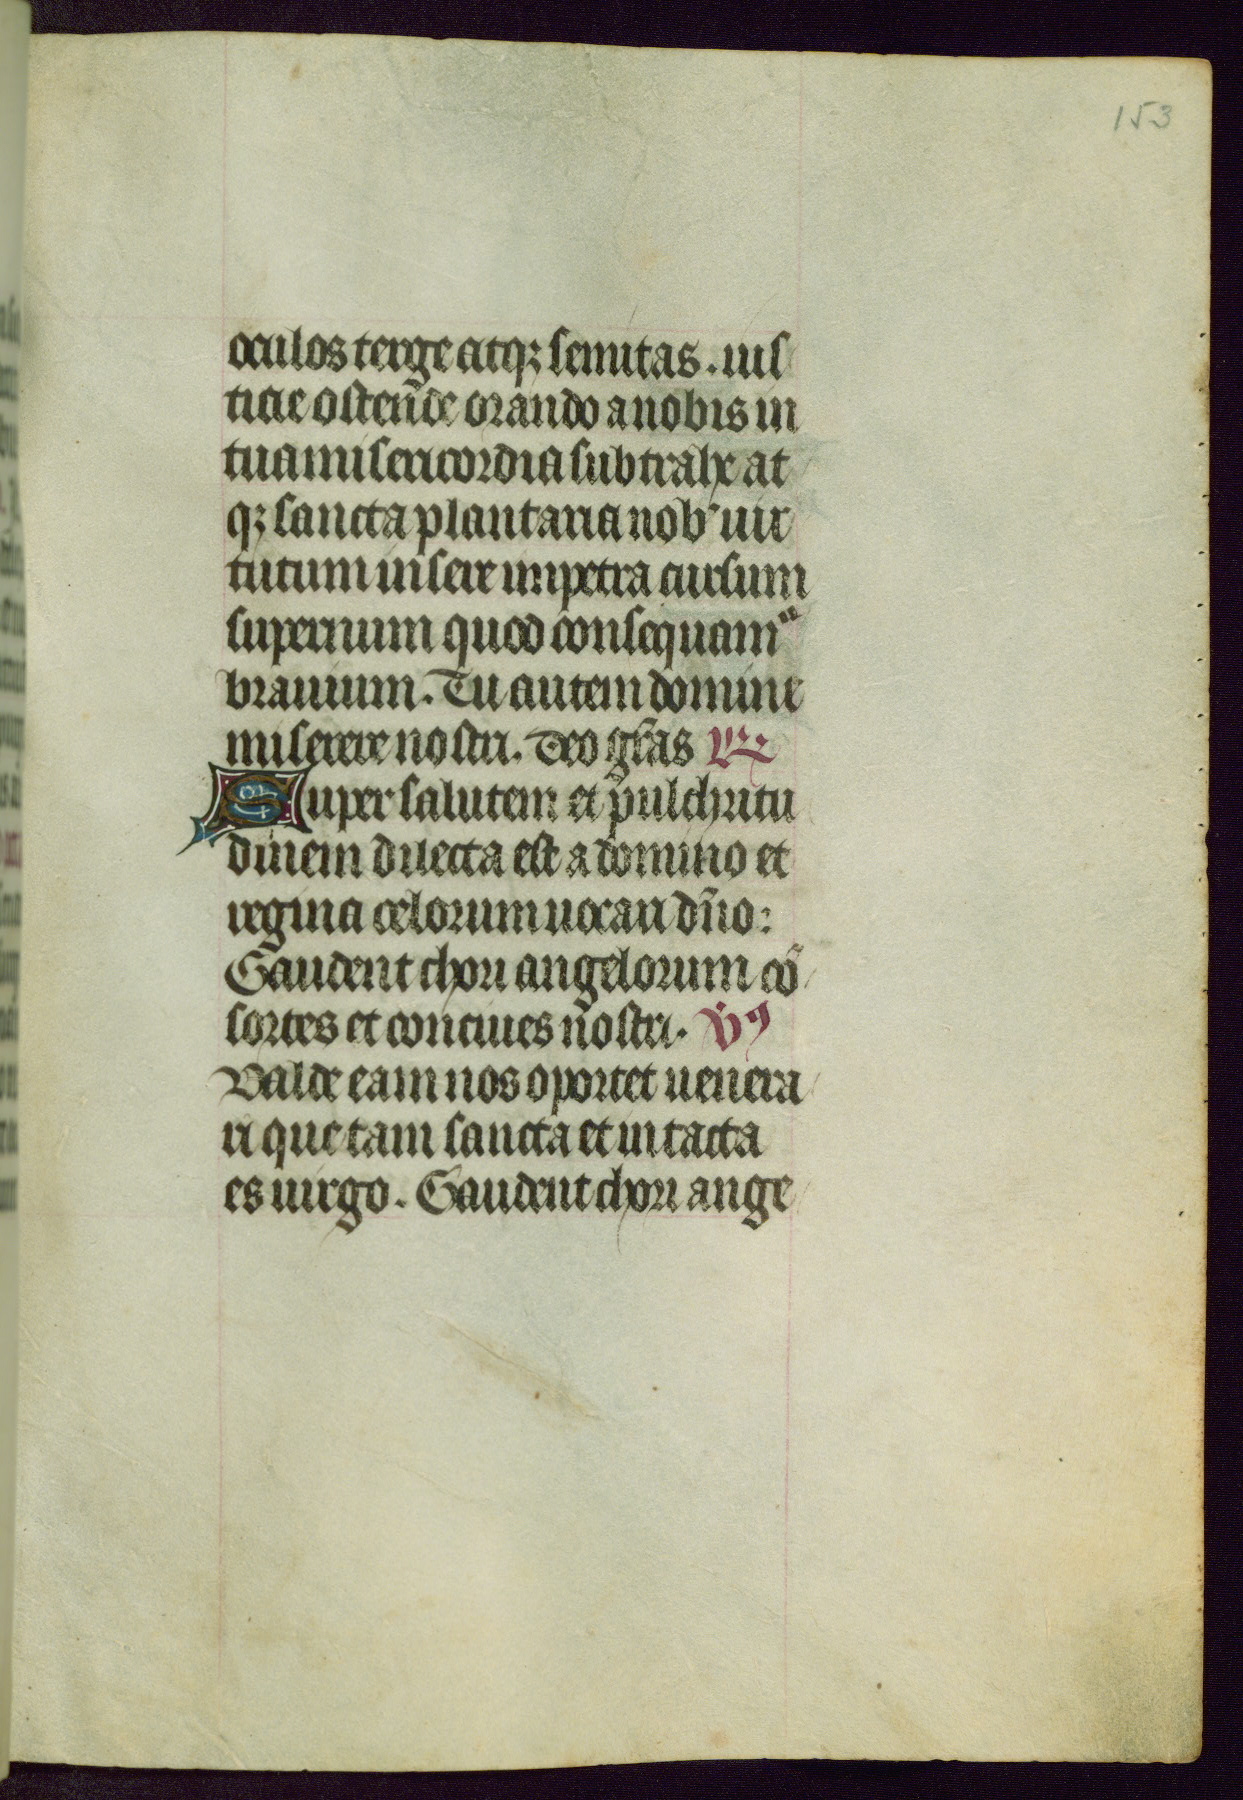 153
oculos terge atqꝫ semitas . iuſ
ticie oſten̄de orando a nobis in
tua miſericordia ſubtrahe at
qꝫ ſancta plantaria nob' uir
tutum inſere impetra curſum
ſupernum quod conſequam"
brauium . Tu autem domine
miſerere noſtri . Deo gr̄as
Super ſalutem et pulchritu
dinem dilecta eſt a domino et
regina celorum uocari dn̄o :
Gaudent chori angelorum cō
ſortes et conciues noſtri . v̇ꝰ
Valde eam nos oportet uenera
ri que tam ſancta et intacta
es uirgo . Gaudent chori ange